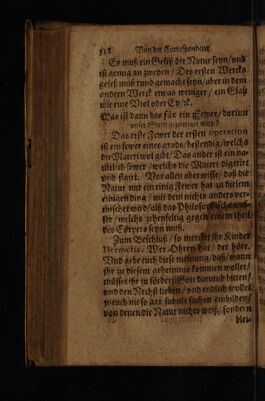 312 Von der Correspondent
Es muß ein Gefäß der Natur seyn / und
ist genug an zweyen / Des ersten Wercks
gefeß muß rund gemacht seyn / aber in dem
andern Werck etwas weniger / ein Glaß
wie eine Viol oder Ey / ꝛc.
Was ist dann das für ein Fewer / darinn
unser Stein gekochet wird?
Das erste Fewer der ersten operation
ist ein fewer eines grads / bestendig / welchs
die Materi wol gibt / Das ander ist ein na-
türlich fewer / welchs die Materi digerirt
und figirt. Vor allen aber wisse / daß die
Natur mit ein einig Fewer hat zu diesem
einigen ding / mit dem nichts anders ver-
mischet wird / als das Philosophisch
ser / welchs zehenfeltig gegen einem theil
des Cörpers seyn muß.
Zum Beschluß / so mercket ihr Kinder
Hermetis, Wer Ohren hat / der höre.
Und gebe euch diese meinung / daß / wann
ihr zu diesem geheimnis kommen wollet /
müsset ihr zu förderst Gott darumb bitten /
und den Nechst lieben / und endlich wollet
euch nit so gar subtile sachen einbilden /
von denen die Natur nichts weiß / sondern
blei-